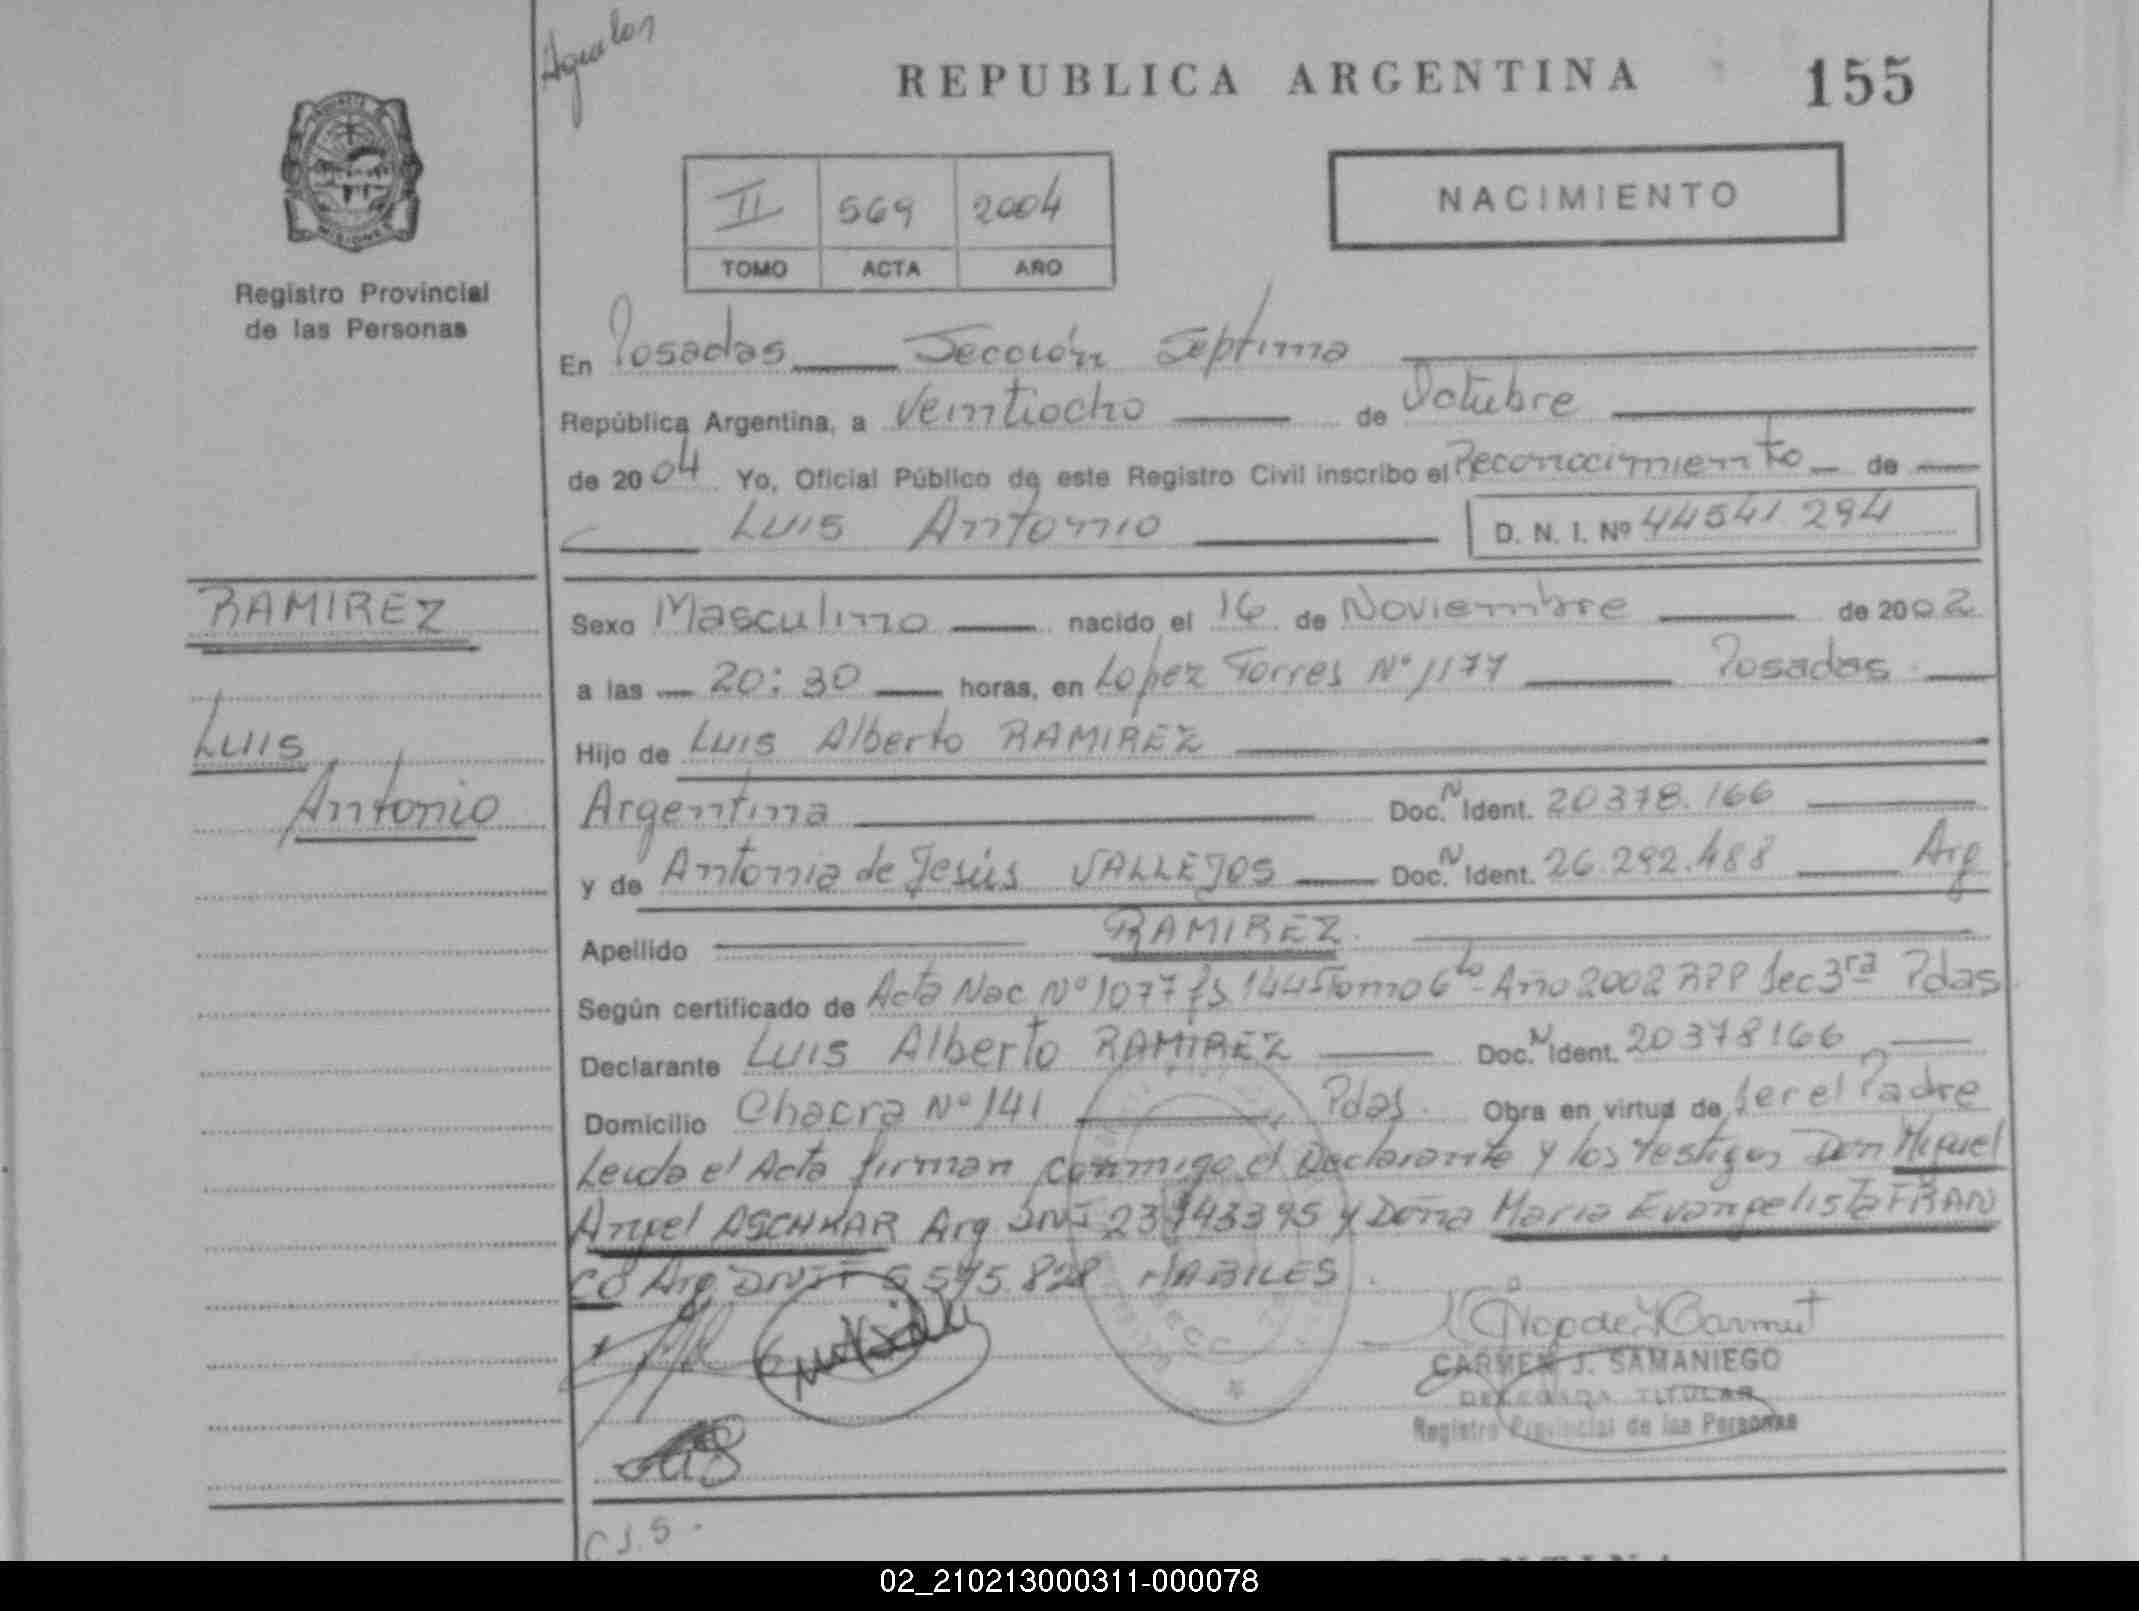 Aguelos
REPUBLICA ARGENTINA 155
II 569 2004
TOMO ACTA AÑO
NACIMIENTO
MISIONES
Registro Provincial
de las Personas
En Posadas Sección Septima
República Argentina, a Veintiocho de Octubre
de 2004 Yo, Oficial Público de este Registro Civil inscribo el Reconocimiento de
Luis Antonio D. N. I. Nº 44541294
RAMIREZ
Luis
Antonio
Sexo Masculino nacido el 16 de Noviembre de 2002
a las 20:30 horas, en Lopez Torres Nº 1177 Posadas
Hijo de Luis Alberto RAMIREZ
Argentina Doc. N Ident. 20378.166
y de Antonia de Jesús VALLEJOS Doc. N Ident. 26.292.488 Arg
Apellido RAMIREZ
Según certificado de Acta Nac Nº 1077 fs 144 Tomo 6to Año 2002 RPP Sec 3ra Pdas
Declarante Luis Alberto RAMIREZ Doc. N Ident. 20378166
Domicilio Chacra Nº 141 Pdas. Obra en virtud de ser el Padre
Leida el Acta firman conmigo el Declarante y los testigos Don Miguel
Angel ASCHKAR Arg DNI y Doña Maria Evangelista FRAN
CO Arg DNI HABILES
CARMEN J. SAMANIEGO
DELEGADA TITULAR
Registro Provincial de las Personas
C.J.S.
02_210213000311-000078